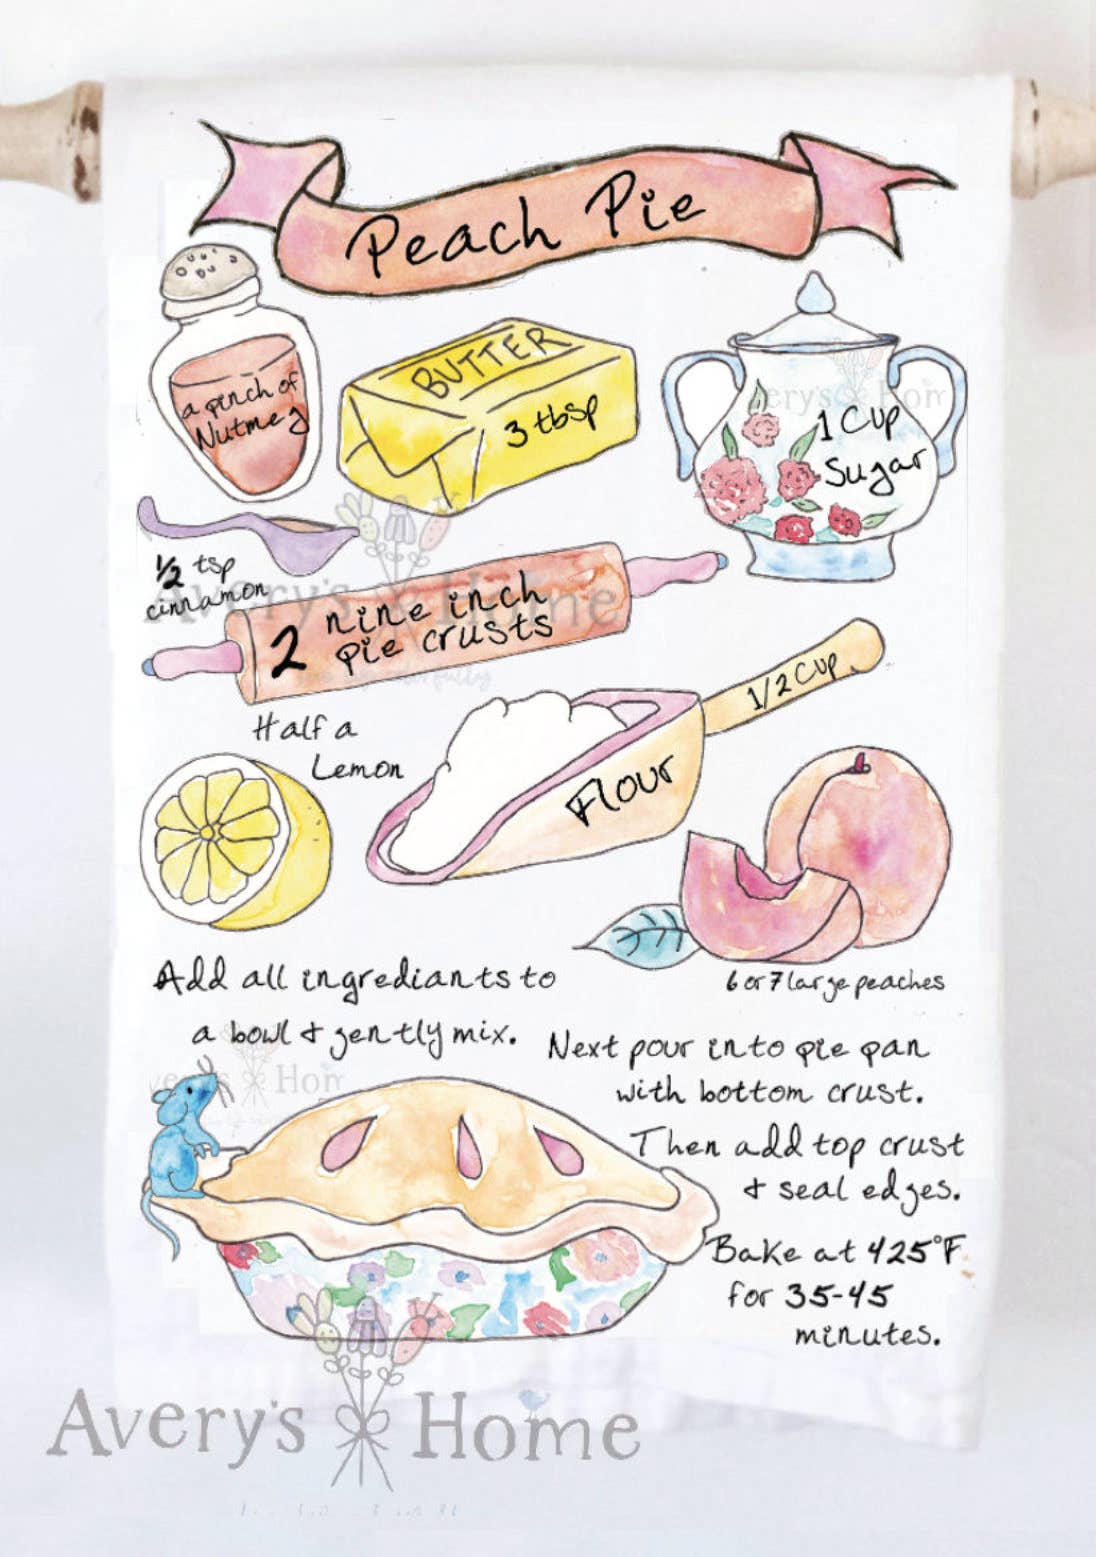 Peach Pie
a pinch of
Nutmeg
BUTTER
3 tbsp
1 Cup
Sugar
1/2 tsp
cinnamon
2 nine inch
pie crusts
1/2 Cup
Flour
Half a
Lemon
6 or 7 large peaches
Add all ingrediants to
a bowl & gently mix.
Next pour into pie pan
with bottom crust.
Then add top crust
& seal edges.
Bake at 425°F
for 35-45
minutes.
Avery's Home
Avery's Home
Avery's Home
Avery's Home